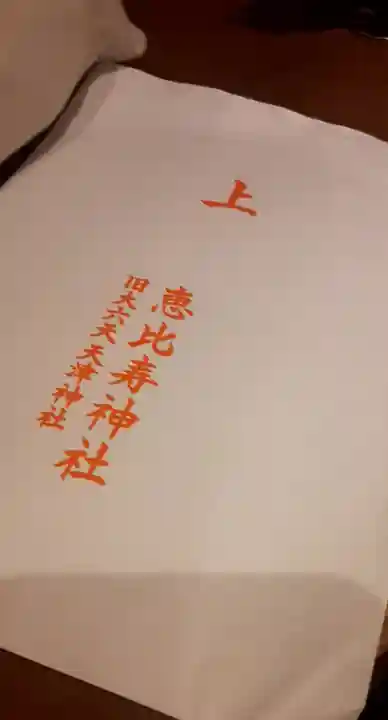 上
恵比寿神社
旧大六天天津神社